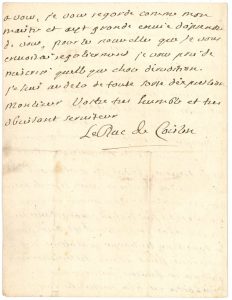 a vous, je vous regarde comme mon
maitre et ayt grande envie d'aprendre
de vous, pour les nouvelles que je vous
envoirai regulierement je vous prie de
m'ecrire quelque chose
je suis au dela de toute sorte d'expression
monsieur Vostre tres humble et tres
obeissant serviteur
Le Duc de